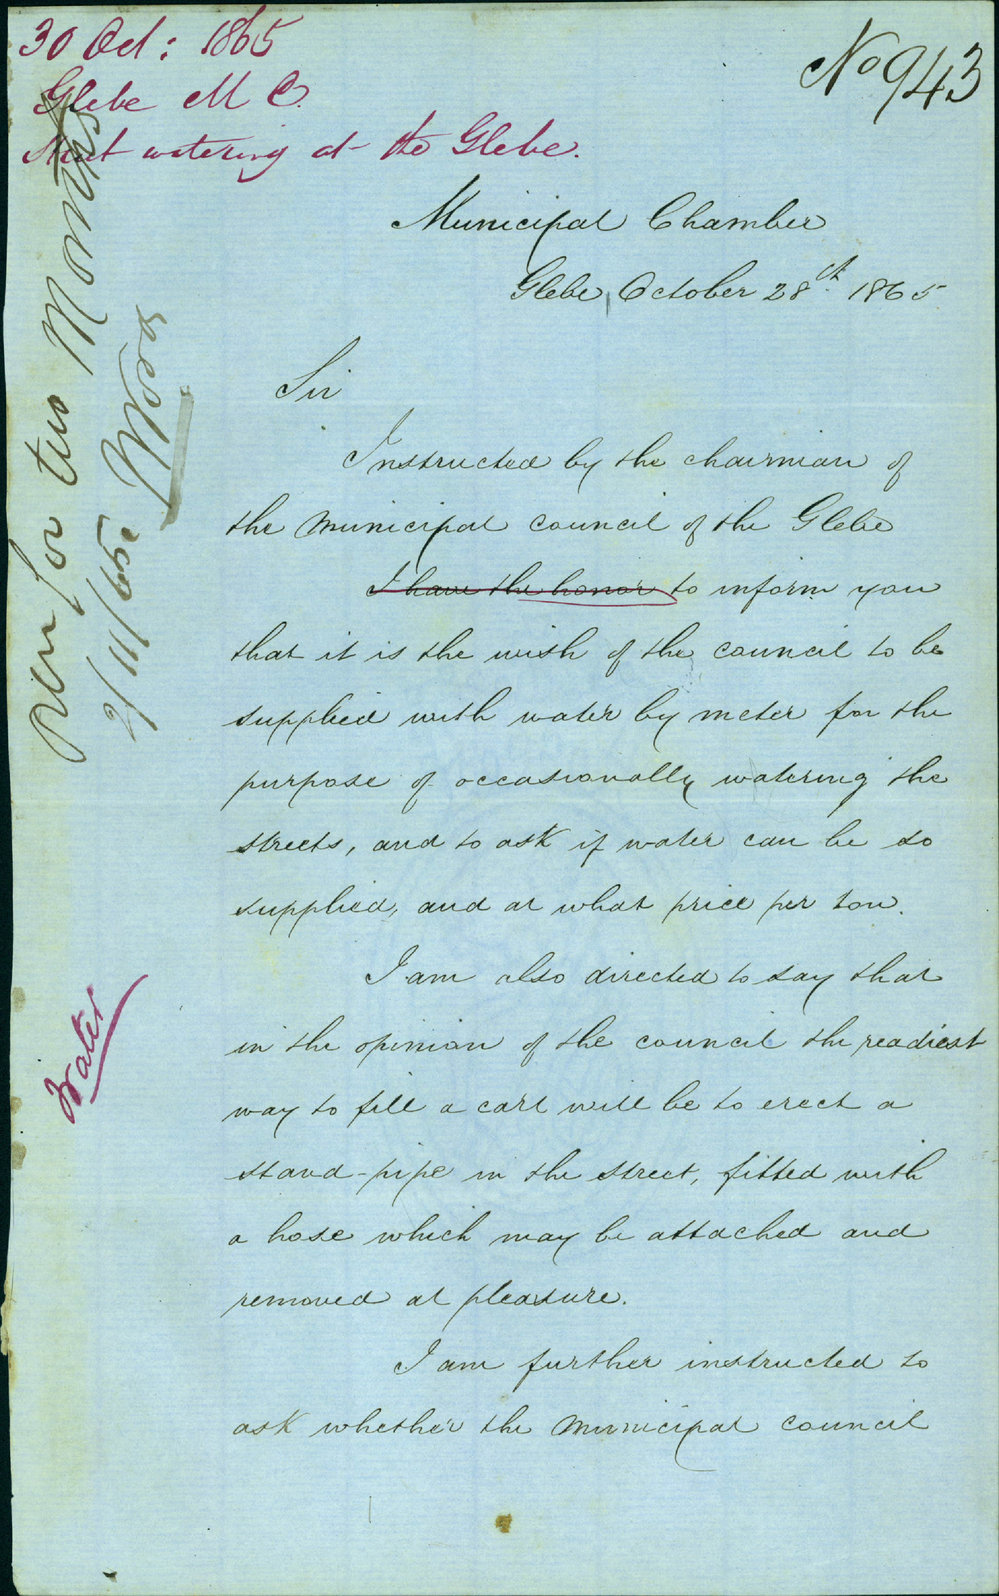 30 Oct: 1865
Glebe M C.
Street watering at the Glebe.
No 943
Municipal Chamber
Glebe, October 28th 1865
Sir
Instructed by the chairman of
the Municipal council of the Glebe
I have the honor to inform you
that it is the wish of the council to be
supplied with water by meter for the
purpose of occasionally watering the
streets, and to ask if water can be so
supplied, and at what price per ton.
I am also directed to say that
in the opinion of the council the readiest
way to fill a cart will be to erect a
stand-pipe in the street, fitted with
a hose which may be attached and
removed at pleasure.
I am further instructed to
ask whether the Municipal council
for two Months
2/11/65.
Water